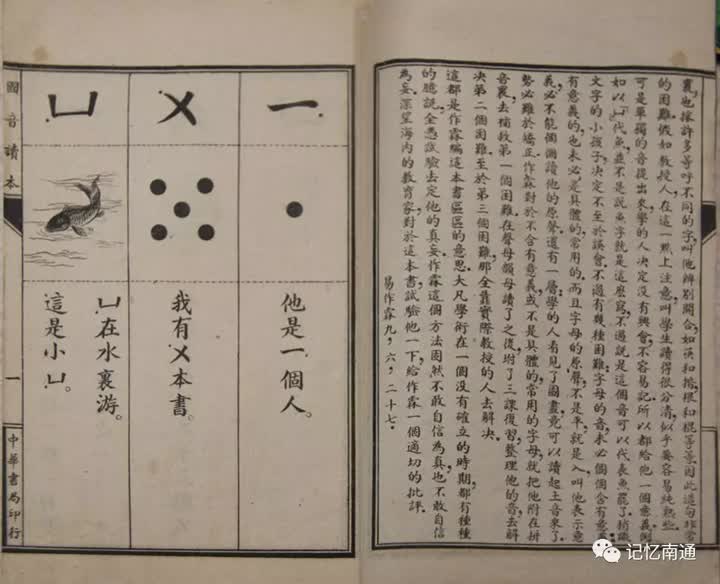 襄,也採許多等呼不同的字,叫他辨别開合,如筷和揩,棍和棍等等,因此造句非常
的困難,假如教授人在這一點上注意,叫學生讀得很分清,似乎要容易純熟些.
可是單獨的音提出來,學的人決定沒有興會,不容易記.所以都給他一個意義.例
如以ㄩ代魚,並不是說魚字就是這麽寫,不過說是這個音可以代表魚罷了.稍識
文字的小孩子,決定不至於誤會.不過有幾種困難:字母的音,未必個個含有意
有意義的,也未必是具體的,常用的.而且字母的原聲,不是平,就是入,叫他表示意
義,必不能個個讀他的原聲.還有一層,學的人看見了圖畫,竟可以讀起土音來了,
勢必難於矯正.作霖對於不含有意義或不是具體的常用的字母,就把他附在拼
音裏,去補救第一個困難.在聲母韻母讀了之後,坿了三課復習,整理他的音,去解
決第二個困難.至於第三個困難,那全靠實際教授的人去解決.
這都是作霖編這本書區區的意思.大凡學術在一個沒有確立的時期,都有種種
的臆說,全憑試驗去定他的真妄.作霖這個方法,固然不敢自信為真,也不敢自信
為妄.深望海内的教育家,對於這本書試驗他一下,給作霖一個適切的批評.
易作霖九,六,二十七.
一
他是一個人。
ㄨ
我有ㄨ本書。
ㄩ
ㄩ在水裏游。
這是小ㄩ。
國音讀本
一
中華書局印行
记忆南通